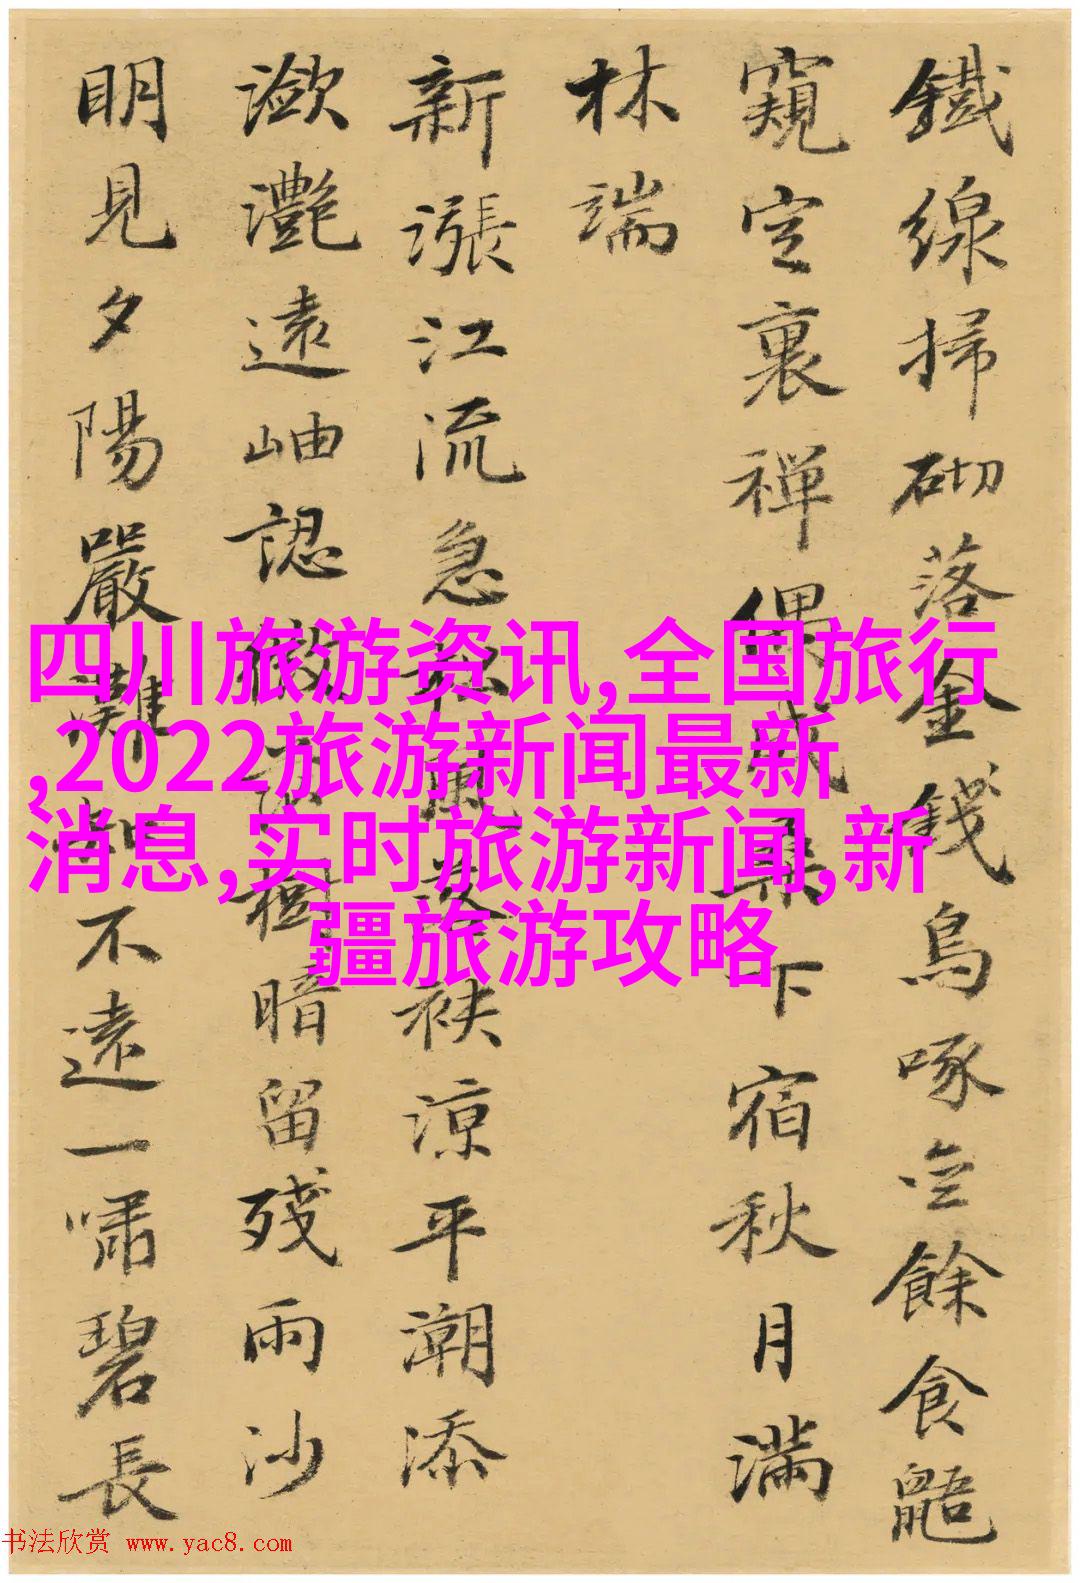 鐵線掃砌落金錢烏啄無餘食鼯
窺定裏禪偶成桑下宿秋月滿
林端
新漲江流急鼠落袂涼平潮添
瀲灩遠岫認微樹暗留殘雨沙
明見夕陽嚴灘知不遠一嘯碧長
四川旅游资讯,全国旅行
,2022旅游新闻最新
消息,实时旅游新闻,新
疆旅游攻略
书法欣赏 www.yac8.com